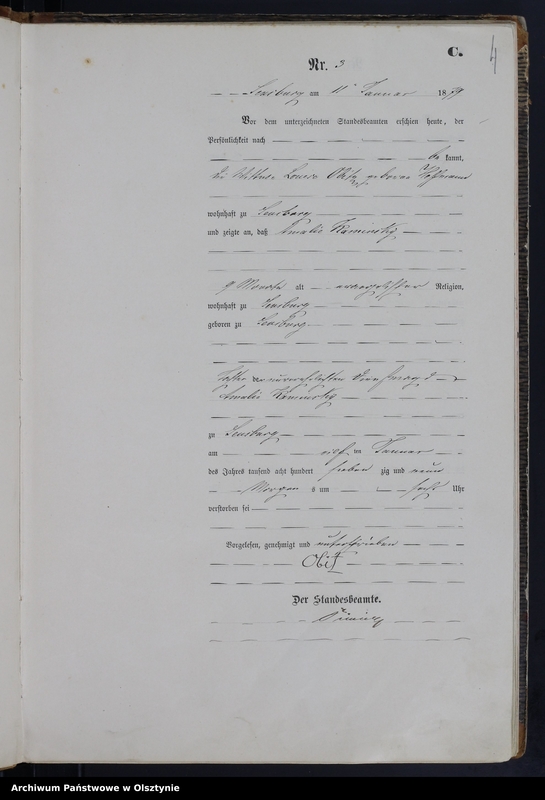 C.
4
Nr. 3
Sensburg am 11 Januar 1879
Vor dem unterzeichneten Standesbeamten erschien heute, der
Persönlichkeit nach
be kannt,
die Louise geborene Hoffmann
wohnhaft zu Sensburg
und zeigte an, daß Amalie Kaminsky
9 Monate alt evangelischer Religion,
wohnhaft zu Sensburg
geboren zu Sensburg
Tochter der unverehelichten Dienstmagd
Amalie Kaminsky
zu Sensburg
am Januar
des Jahres tausend acht hundert sieben zig und neun
Morgens um sechs Uhr
verstorben sei
Vorgelesen, genehmigt und unterschrieben
Der Standesbeamte.
Archiwum Państwowe w Olsztynie